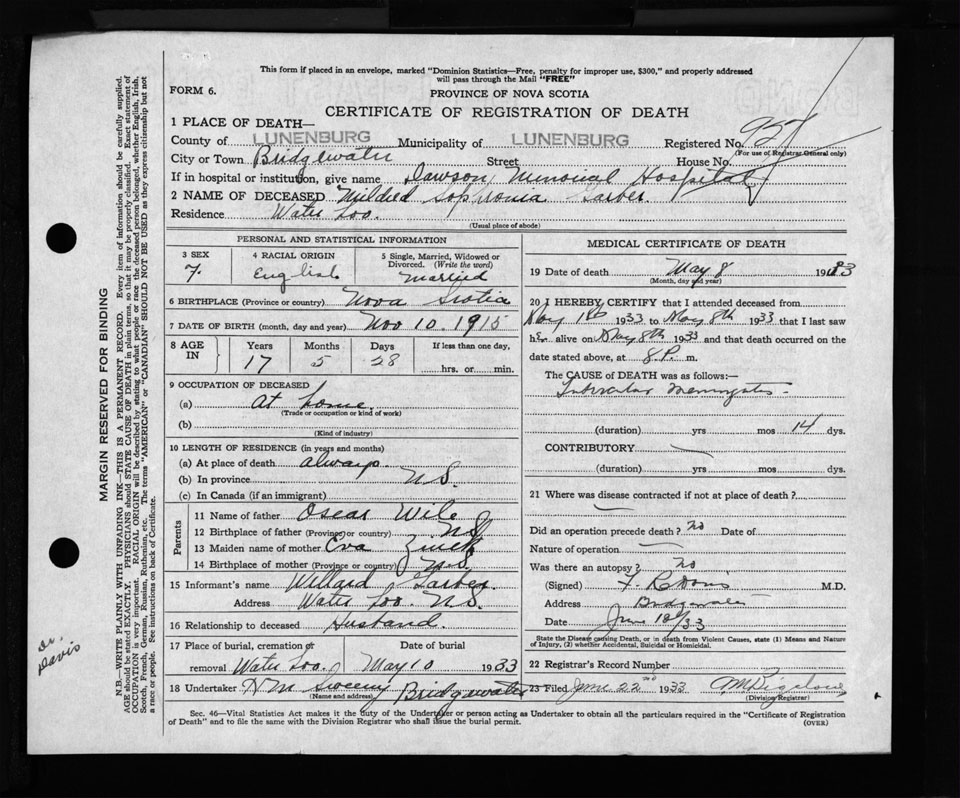 This form if placed in an envelope, marked "Dominion Statistics—Free, penalty for improper use, $300," and properly addressed
will pass through the Mail "FREE"
FORM 6.
PROVINCE OF NOVA SCOTIA
CERTIFICATE OF REGISTRATION OF DEATH
1 PLACE OF DEATH—
County of LUNENBURG Municipality of LUNENBURG Registered No. 957
(For use of Registrar General only)
City or Town Bridgewater Street House No.
If in hospital or institution, give name Dawson Memorial Hospital
2 NAME OF DECEASED Mildred Sophronia Garber.
Residence Water Loo.
(Usual place of abode)
PERSONAL AND STATISTICAL INFORMATION
3 SEX
F.
4 RACIAL ORIGIN
English
5 Single, Married, Widowed or
Divorced. (Write the word)
Married
6 BIRTHPLACE (Province or country) Nova Scotia
7 DATE OF BIRTH (month, day and year) Nov 10. 1915
8 AGE IN
Years Months Days If less than one day,
17 5 28 hrs. or min.
9 OCCUPATION OF DECEASED
(a) At home.
(Trade or occupation or kind of work)
(b)
(Kind of industry)
10 LENGTH OF RESIDENCE (in years and months)
(a) At place of death always.
(b) In province N.S.
(c) In Canada (if an immigrant)
Parents
11 Name of father Oscar Wile
12 Birthplace of father (Province or country) N.S.
13 Maiden name of mother Eva Zinck
14 Birthplace of mother (Province or country) N.S.
15 Informant's name Willard Garber.
Address Water Loo. N.S.
16 Relationship to deceased Husband.
17 Place of burial, cremation or Date of burial
removal Water Loo. May 10 1933
18 Undertaker H M Sweeny Bridgewater
(Name and address)
MEDICAL CERTIFICATE OF DEATH
19 Date of death May 8 1933
(Month, day and year)
20 I HEREBY CERTIFY that I attended deceased from
May 1st 1933 to May 8th 1933 that I last saw
her alive on May 8th 1933 and that death occurred on the
date stated above, at 8 P. m.
The CAUSE of DEATH was as follows:—
Tubercular Meningitis -
(duration) yrs mos 14 dys.
CONTRIBUTORY
(duration) yrs mos dys.
21 Where was disease contracted if not at place of death?
Did an operation precede death? No Date of
Nature of operation
Was there an autopsy? No
(Signed) Davis M.D.
Address Bridgewater
Date June 18/33
State the Disease causing Death, or in death from Violent Causes, state (1) Means and Nature
of Injury, (2) whether Accidental, Suicidal or Homicidal.
22 Registrar's Record Number
23 Filed June 22nd 1933
(Division Registrar)
Sec. 46—Vital Statistics Act makes it the duty of the Undertaker or person acting as Undertaker to obtain all the particulars required in the "Certificate of Registration
of Death" and to file the same with the Division Registrar who shall issue the burial permit.
(OVER)
MARGIN RESERVED FOR BINDING
N.B.—WRITE PLAINLY WITH UNFADING INK—THIS IS A PERMANENT RECORD. Every item of information should be carefully supplied.
AGE should be stated EXACTLY. PHYSICIANS should STATE CAUSE OF DEATH in plain terms, so that it may be properly classified. Exact statement of
OCCUPATION is very important. RACIAL ORIGIN will be described by stating to what people or race the deceased person belonged, whether English, Irish,
Scotch, French, German, Russian, Ruthenian, etc. The terms "AMERICAN" or "CANADIAN" SHOULD NOT BE USED as they express citizenship but not
a race or people. See instructions on back of Certificate.
Dr. Davis